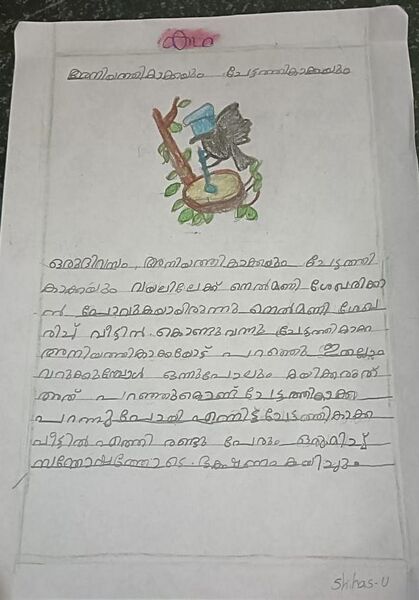 കഥ
അനിയത്തികാക്കയും ചേട്ടത്തികാക്കയും
ഒരുദിവസം അനിയത്തികാക്കയും ചേട്ടത്തി
കാക്കയും വയലിലേക്ക് നെൽമണി ശേഖരിക്കാ
ൻ പോവുകയായിരുന്നു നെൽമണി ശേഖ
രിച്ച് വീട്ടിൻ കൊണ്ടുവന്നു ചേട്ടത്തികാക്ക
അനിയത്തികാക്കയോട് പറഞ്ഞു ഇതെല്ലാം
വറുക്കുമ്പോൾ ഒന്നുപോലും കയിക്കരുത്
അത് പറഞ്ഞുകൊണ്ട് ചേട്ടത്തികാക്ക
പറന്നുപോയി എന്നിട്ട് ചേട്ടത്തികാക്ക
വീട്ടിൽ എത്തി രണ്ടു പേരും ഒരുമിച്ച്
സന്തോഷത്തോടെ. ഭക്ഷണം കയിച്ചും.
Shihas-U